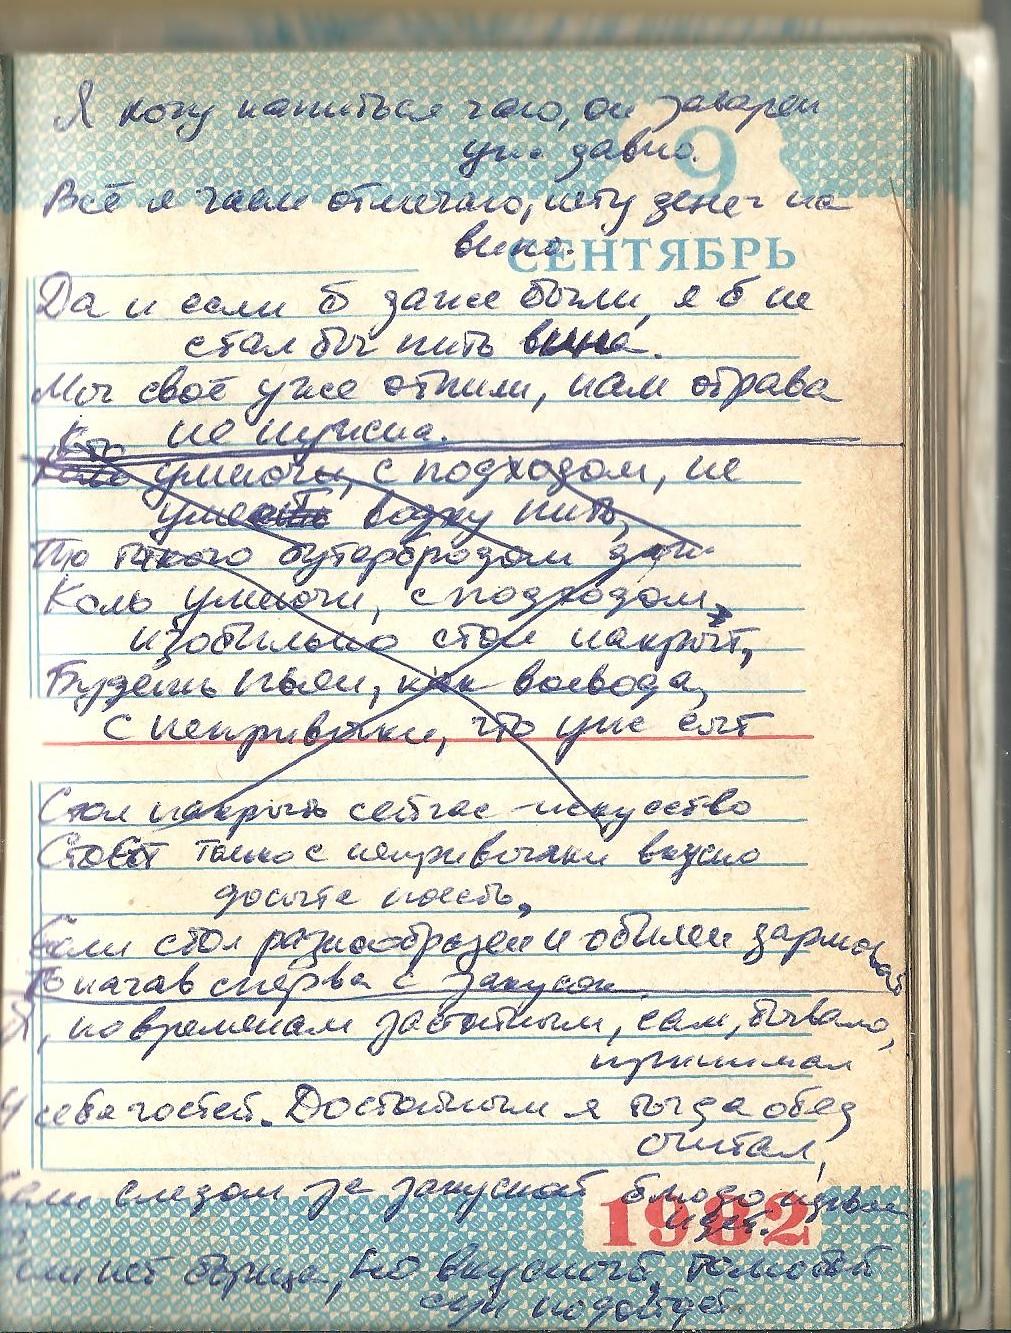 Я хочу напиться чаю, он заварен
уже давно.
9
Всё я чаем отмечаю, нету денег на
вино.
СЕНТЯБРЬ
Да и если б даже были, я б не
стал бы пить вина.
Мы своё уже отпили, нам отрава
не нужна.
Кто
умноочи, с подходом, не
уме водку пить,
То такого бутербродом
Коль умноочи, с подходом,
изобильно стол накрыт,
Будешь пьян, как воевода,
с непривычки, что уже сыт
Стол накрыть сейчас - искусство
Стоит только с непривычки вкусно
досыта поесть,
Если стол разнообразен и обилен
То начав сперва с закусок
Я, по временам застойным, сам, бывало,
принимал
У себя гостей. Достойным я тогда обед
считал,
Если следом за закуской блюдо
идёт.
1982
нет борща, но вкусный, густой
суп подойдёт